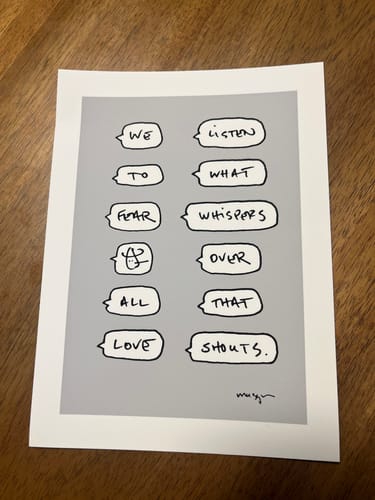 WE LISTEN
TO WHAT
FEAR WHISPERS
OVER
ALL THAT
LOVE SHOUTS.